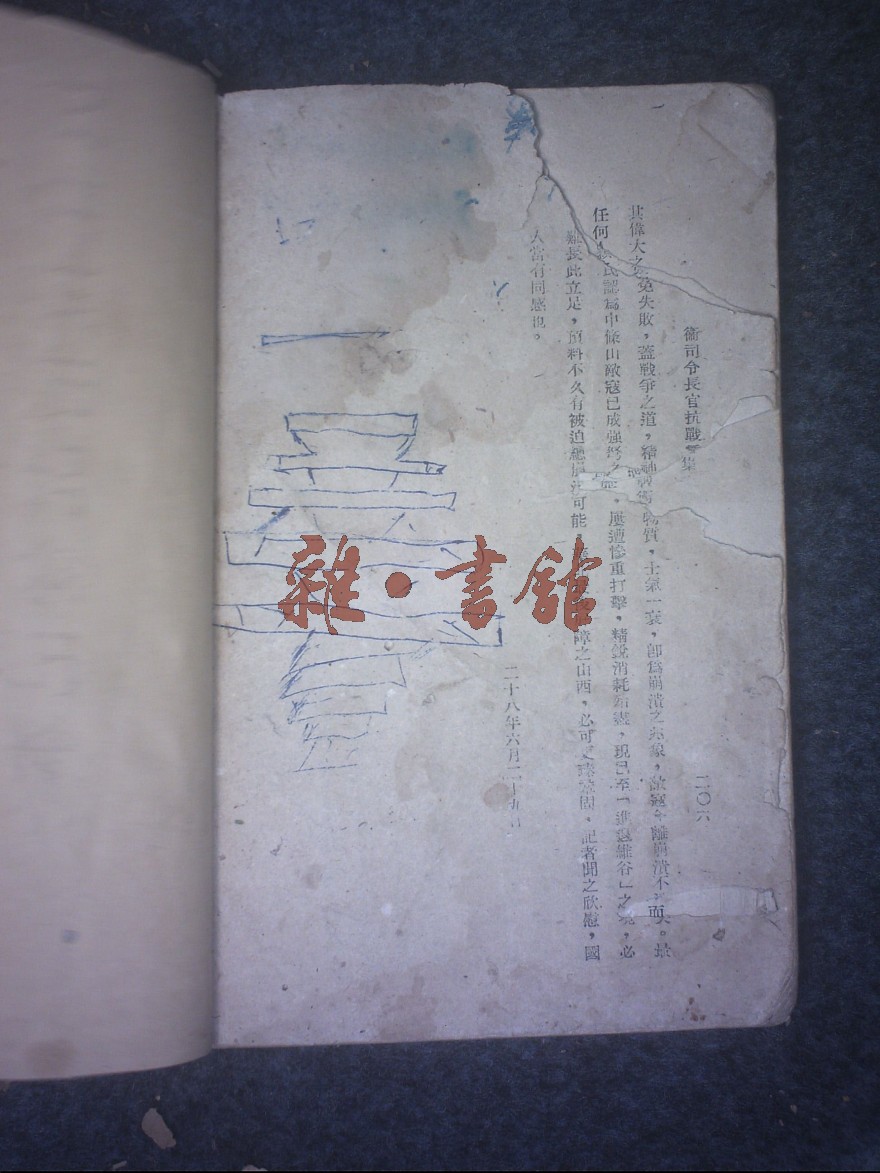 衞司令長官抗戰 集
二〇六
其偉大之 免失敗，蓋戰爭之道，精神 物質，士氣一衰，卽爲崩潰之 線，敵寇今離崩潰不 。最
任何 民 爲中條山敵寇已成强弩之 ，屢遭慘重打擊，精銳消耗 盡，現已至「進退維谷」之 ，必
難長此立足，預料不久有被迫總 可能 障之山西，必可 固，記者聞之欣慰，國
人當有同感也。
二十八年六月二十九日
雜·書館